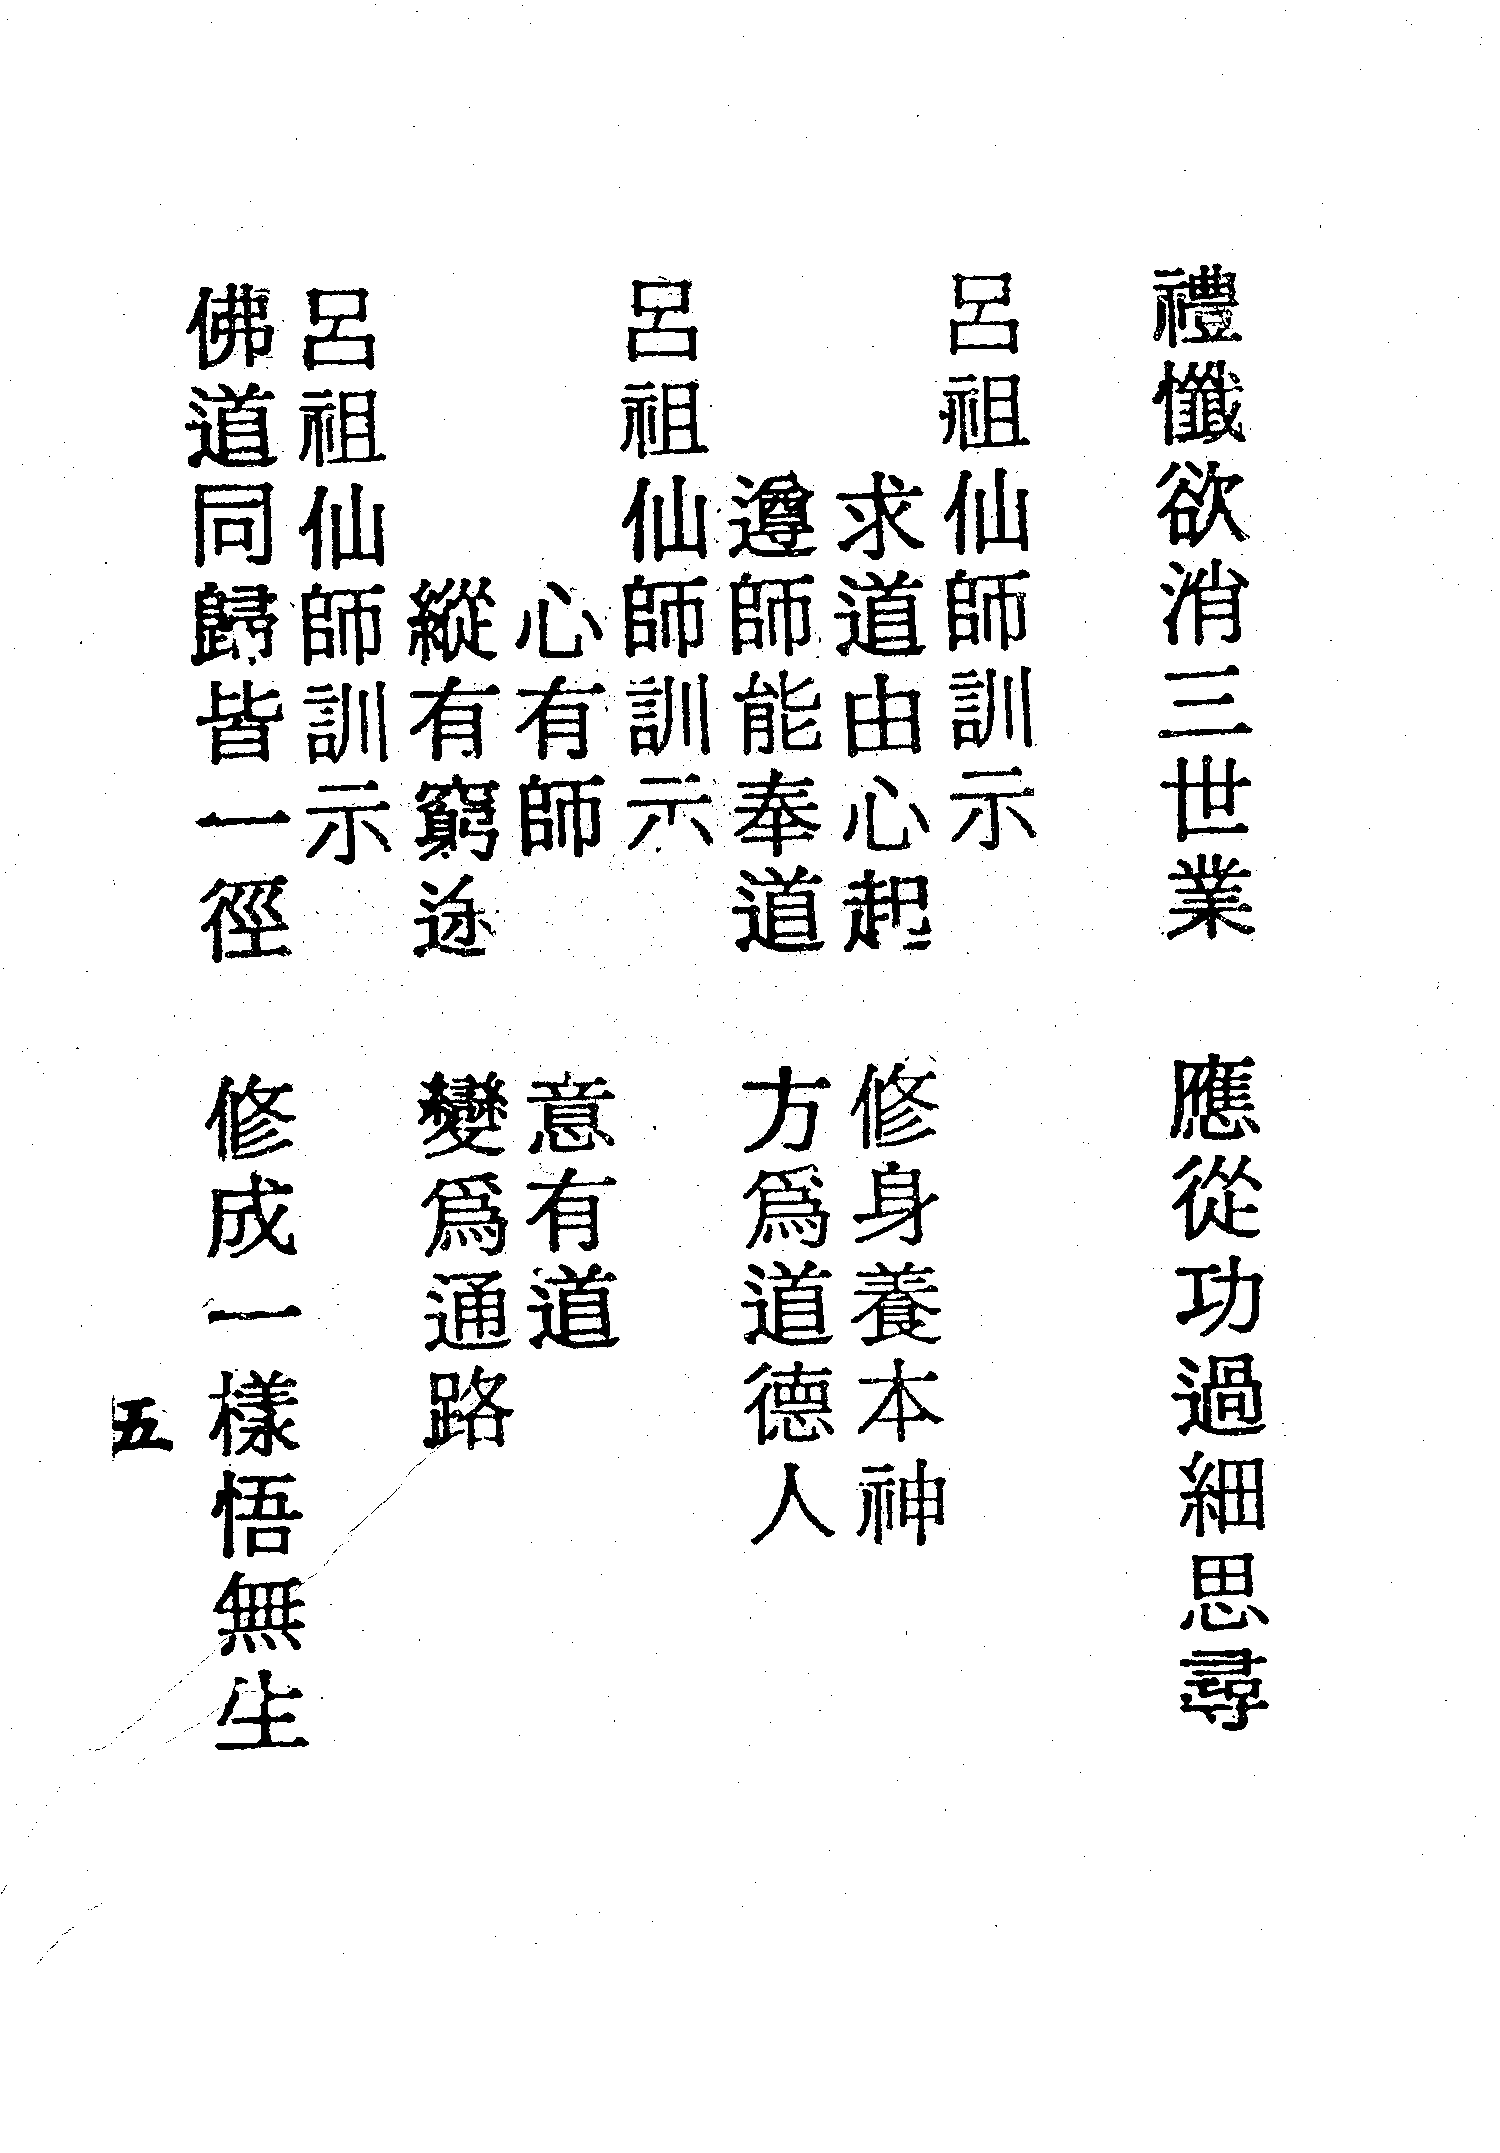 禮懺欲消三世業　應從功過細思尋
呂祖仙師訓示
求道由心起　修身養本神
遵師能奉道　方爲道德人
呂祖仙師訓示
心有師　意有道
縱有窮途　變爲通路
呂祖仙師訓示
佛道同歸皆一徑　修成一樣悟無生
五